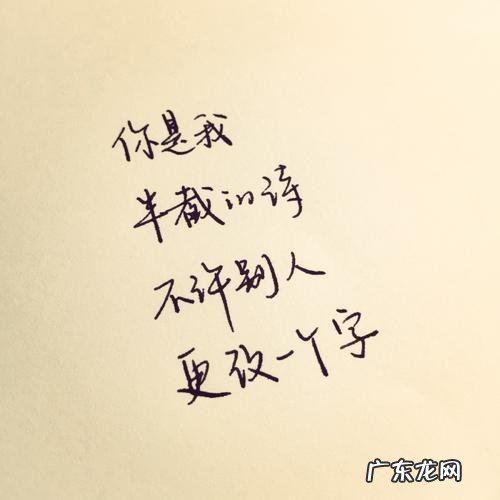 你是我
半截的诗
不许别人
更改一个字
广东龙网